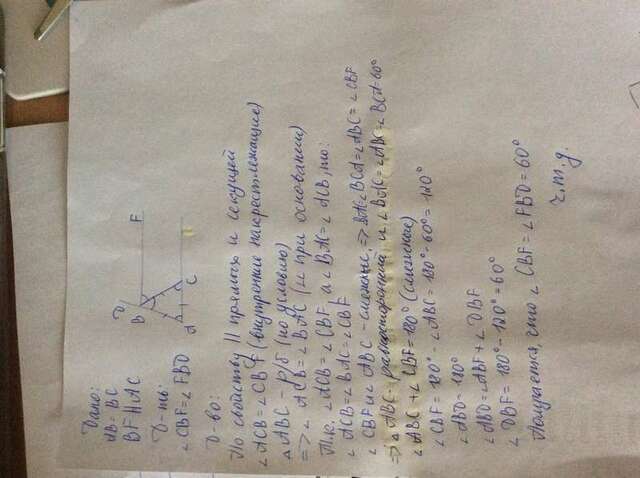 Дано:
AB=BC
BF || AC
Д-ть:
∠CBF=∠FBD
D
B
F
A
C
Д-во:
По свойству || прямых и секущей
∠ACB=∠CBF (внутренние накрестлежащие)
△ABC - р/б (по условию)
=> ∠ACB=∠BAC (∠∠ при основании)
Т.к. ∠ACB=∠CBF а ∠BAC=∠ACB, то:
∠ACB=∠BAC=∠CBF
∠CBF и ∠ABC - смежные, => ∠BCA=∠ABC=∠CBF
=> △ABC - равносторонний и ∠BAC=∠ABC=∠BCA=60°
∠ABC+∠CBF=180° (смежные)
∠CBF=180°-∠ABC=180°-60°=120°
∠ABD=180°
∠ABD=∠ABF+∠DBF
∠DBF=180°-120°=60°
Получается, что ∠CBF=∠FBD=60°
ч.т.д.